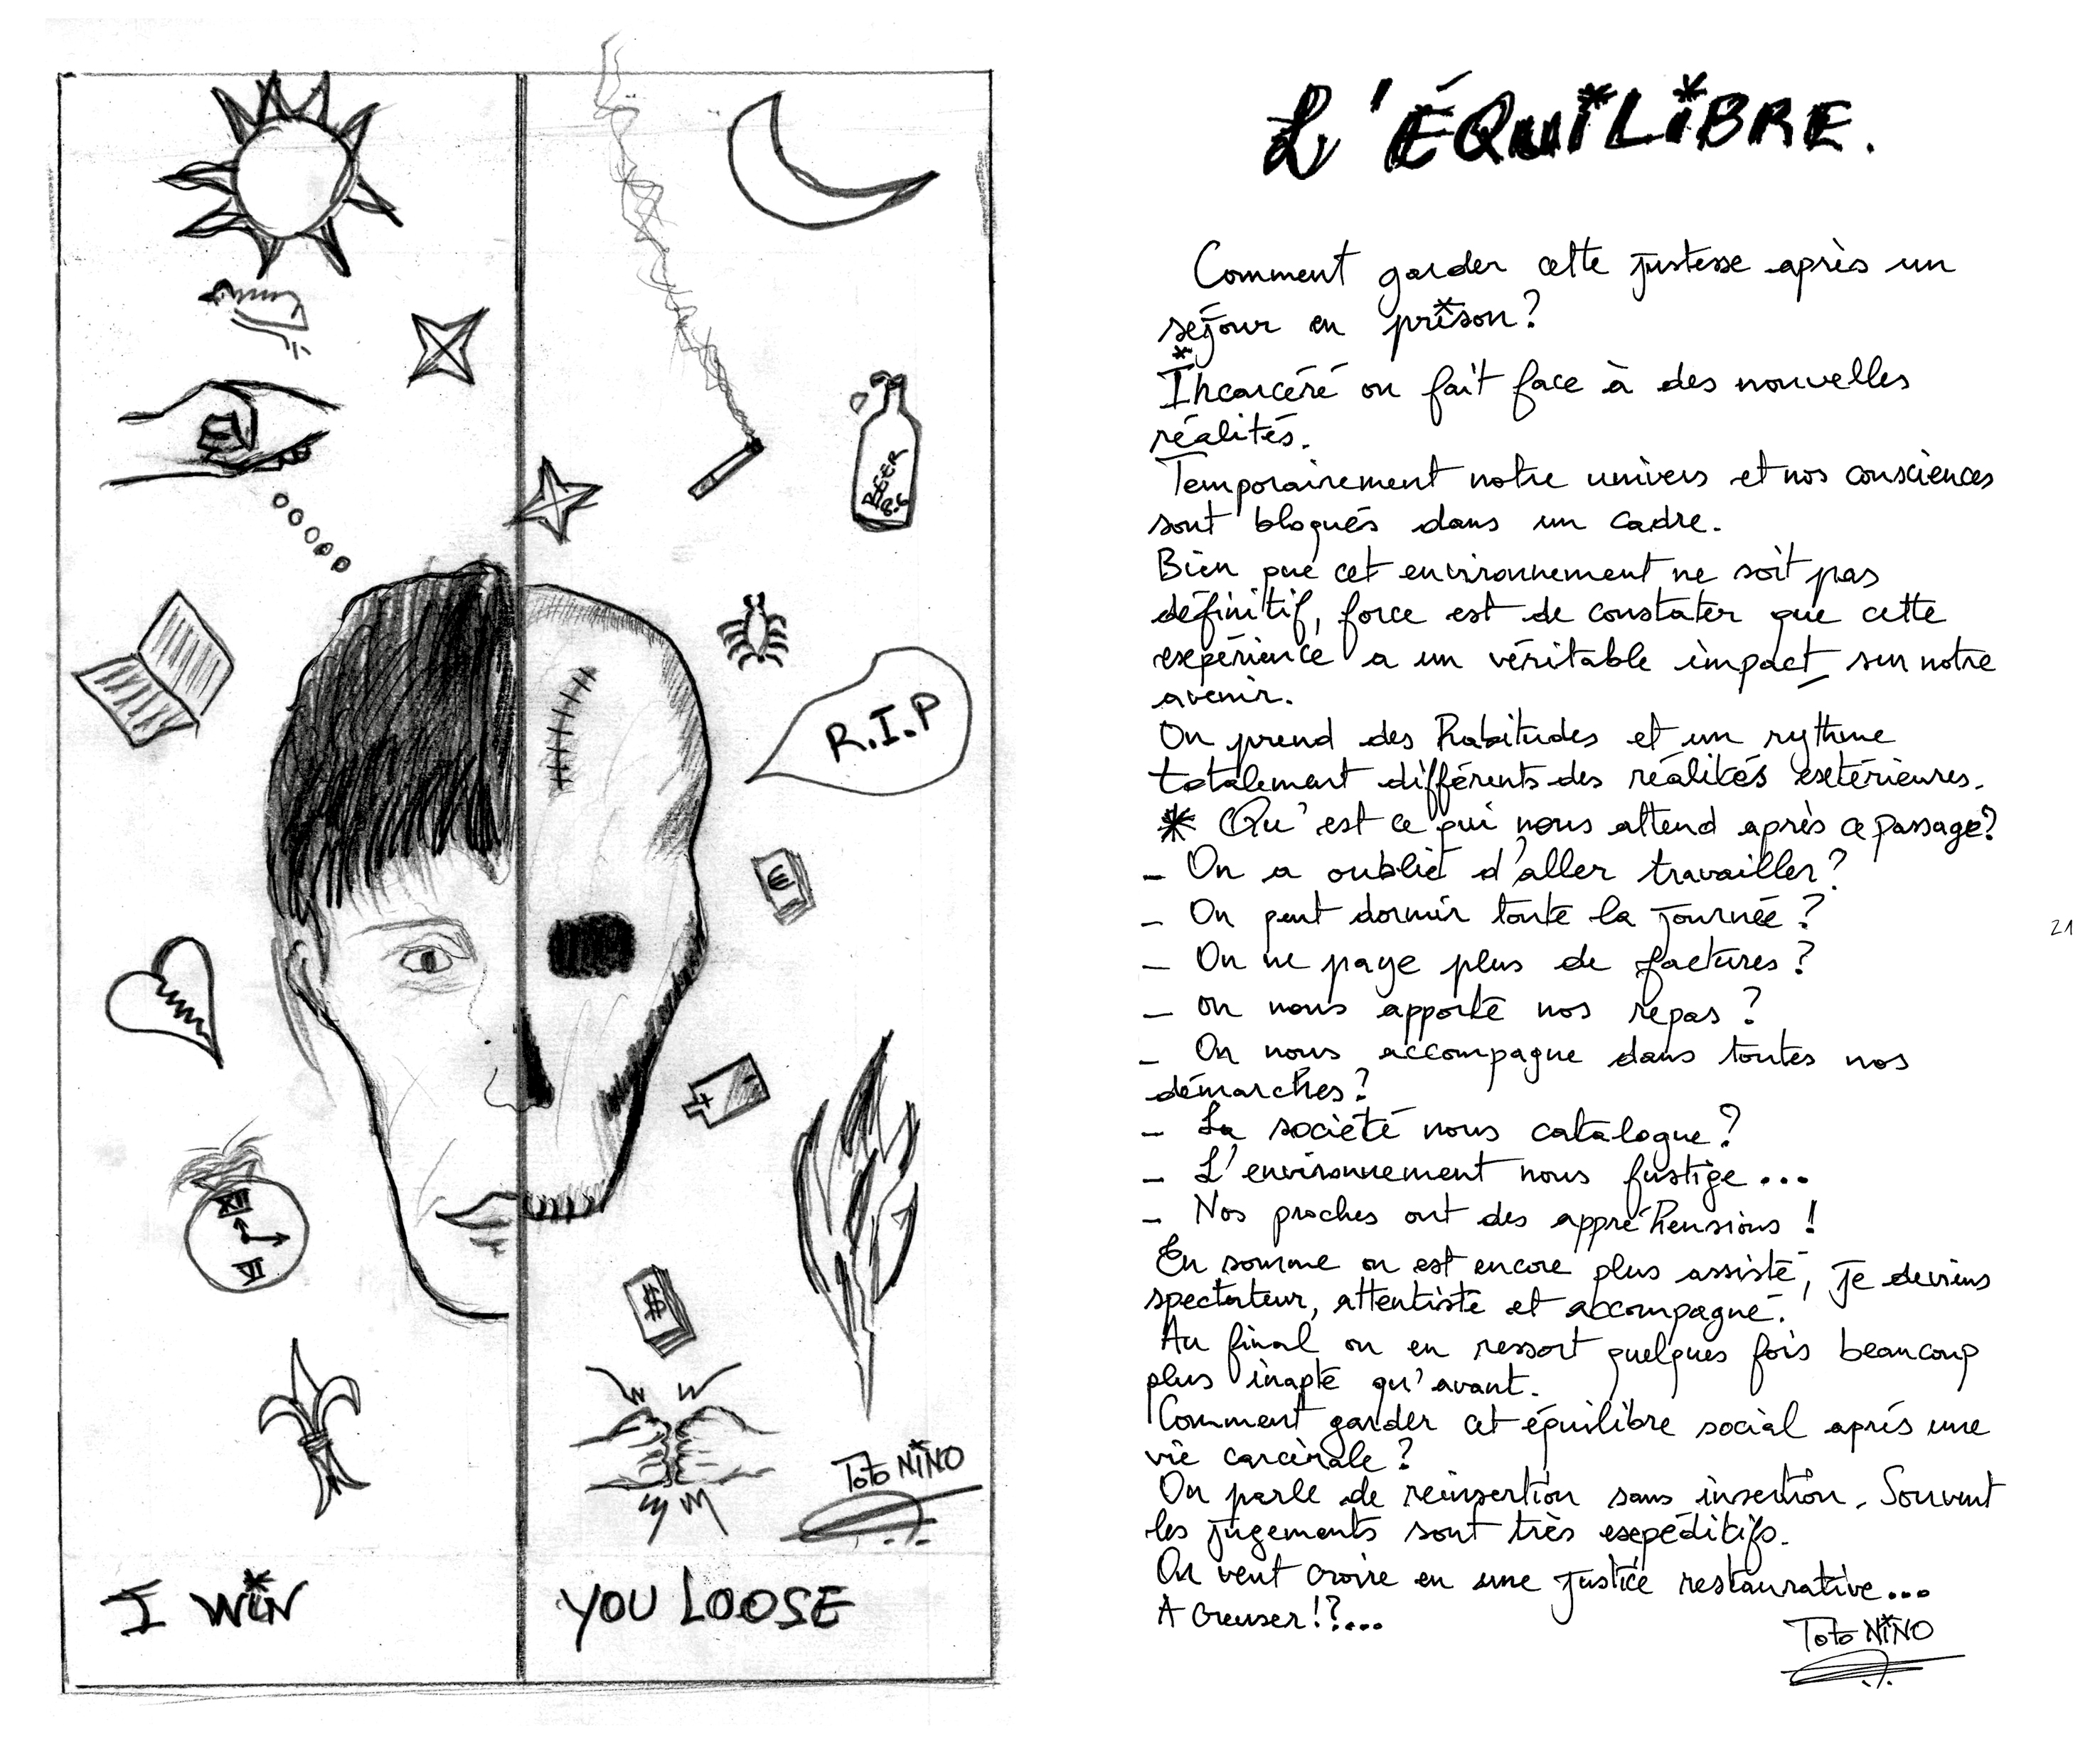 BEER
8.6
R.I.P
€
XII
VI
$
Toto NINO
I WIN
YOU LOOSE
L'ÉQUILIBRE.
Comment garder cette justesse après un
séjour en prison?
* Incarcéré on fait face à des nouvelles
réalités.
Temporairement notre univers et nos consciences
sont bloqués dans un cadre.
Bien que cet environnement ne soit pas
définitif, force est de constater que cette
expérience a un véritable impact sur notre
avenir.
On prend des habitudes et un rythme
totalement différents des réalités extérieures.
* Qu'est ce qui nous attend après ce passage?
- On a oublié d'aller travailler?
- On peut dormir toute la journée?
- On ne paye plus de factures?
- on nous apporte nos repas?
- On nous accompagne dans toutes nos
démarches?
- La société nous catalogue?
- L'environnement nous fustige...
- Nos proches ont des appréhensions!
En somme on est encore plus assisté, je deviens
spectateur, attentiste et accompagné.
Au final on en ressort quelques fois beaucoup
plus inapte qu'avant.
Comment garder cet équilibre social après une
vie carcérale?
On parle de réinsertion sans insertion. Souvent
les jugements sont très expéditifs.
On veut croire en une justice restaurative...
A creuser!?....
Toto NINO
21